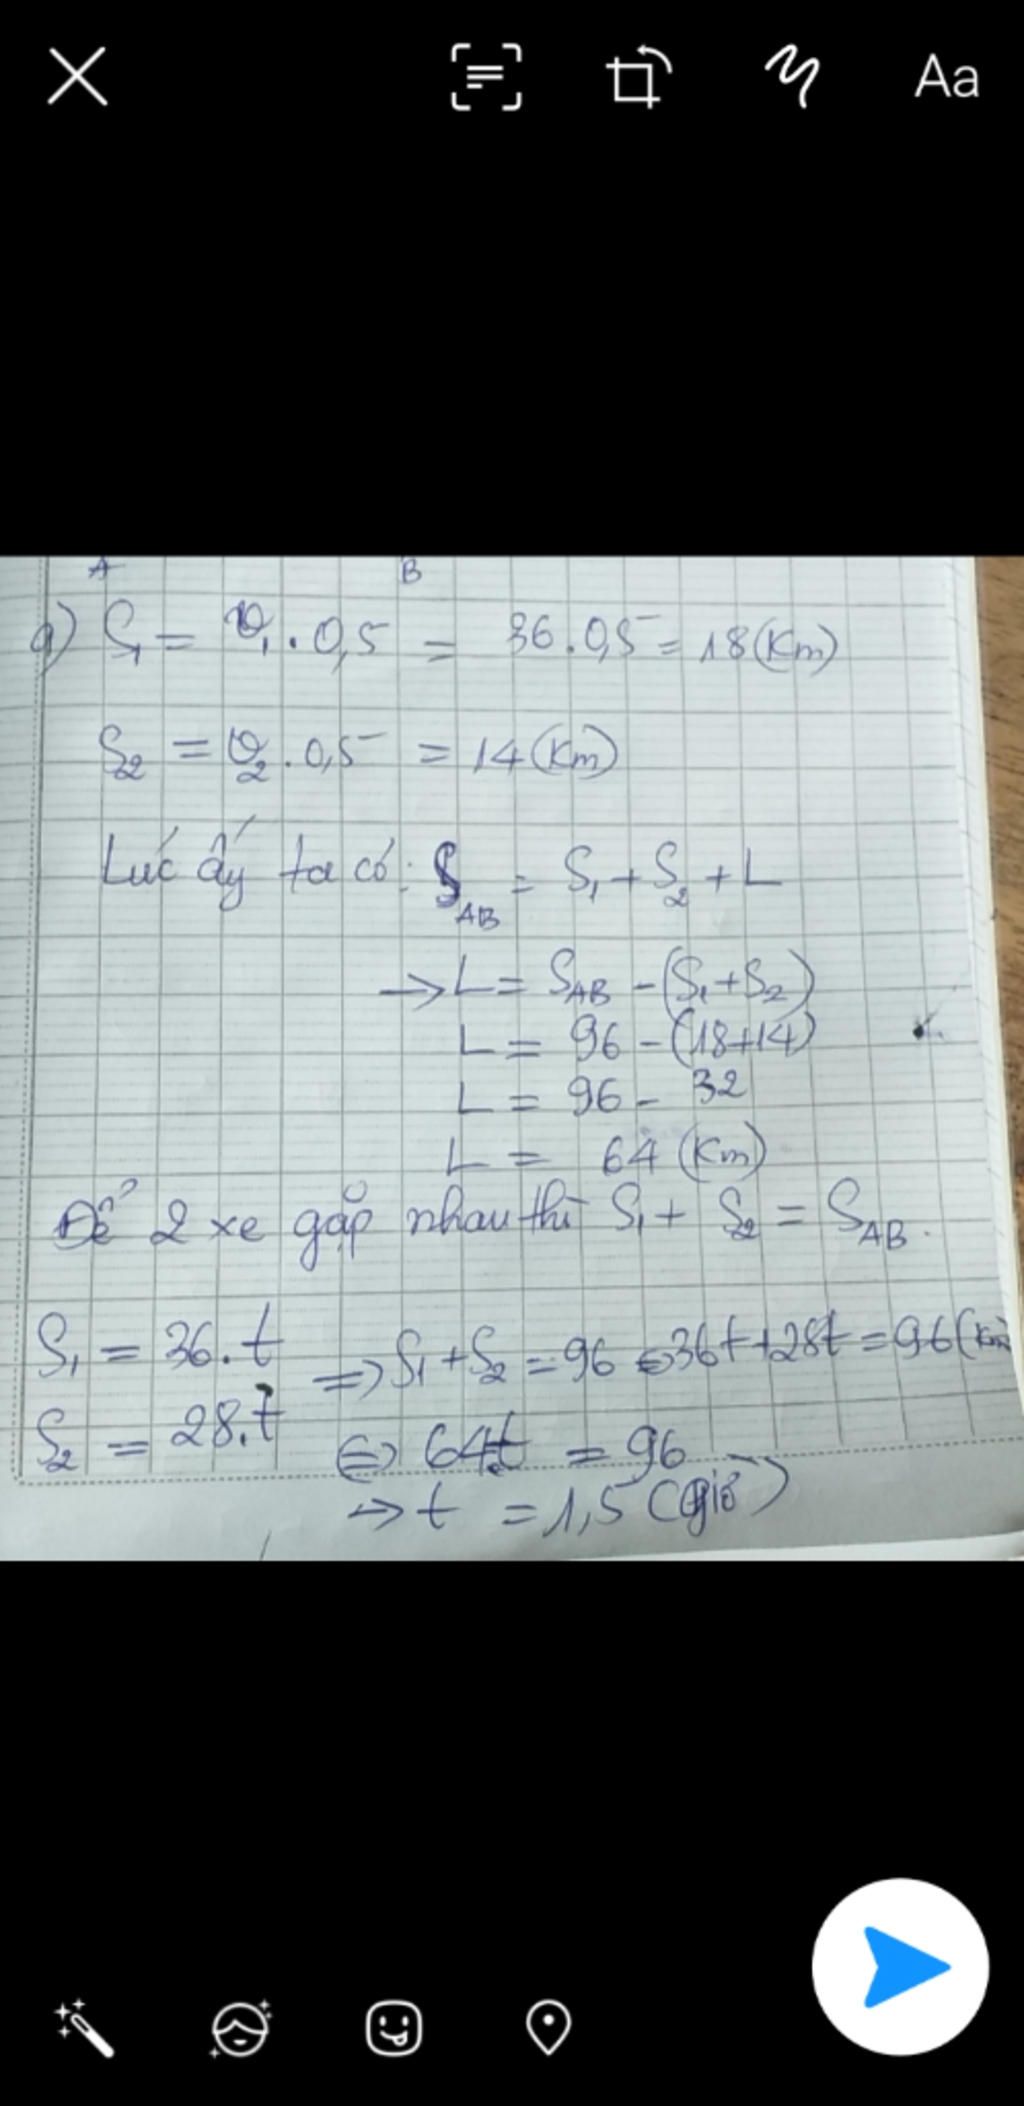 Aa
A B
a) S₁ = v₁ . 0,5 = 36 . 0,5 = 18 (Km)
S₂ = v₂ . 0,5 = 14 (Km)
Lúc ấy ta có: S_AB = S₁ + S₂ + L
→ L = S_AB - (S₁ + S₂)
L = 96 - (18+14)
L = 96 - 32
L = 64 (Km)
Để 2 xe gặp nhau thì S₁ + S₂ = S_AB.
S₁ = 36.t ⇒ S₁ + S₂ = 96 ⇔ 36t + 28t = 96 (Km)
S₂ = 28.t ⇔ 64t = 96
→ t = 1,5 (giờ)